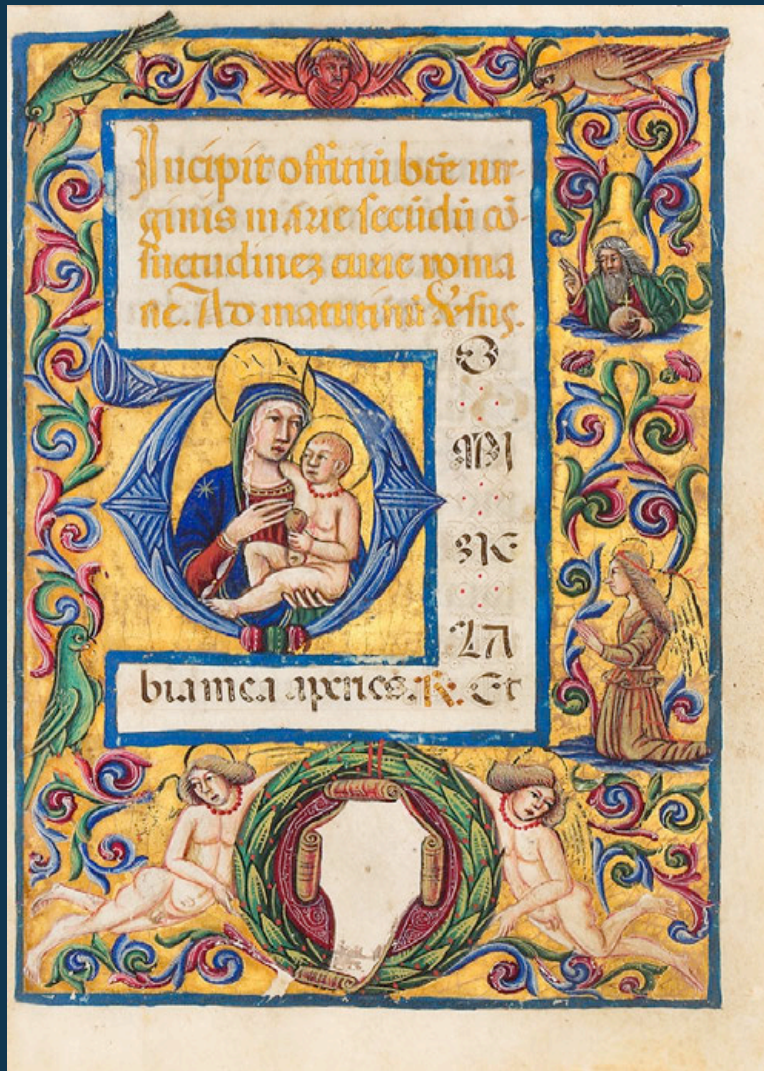 Incipit offitiū bẽte uir-
ginis marie secūdū cō
suetudinez curie roma
ne. Ad matutinū ꝟsus.
O
MI
NE
LA
bia mea aperies. ℞. Et